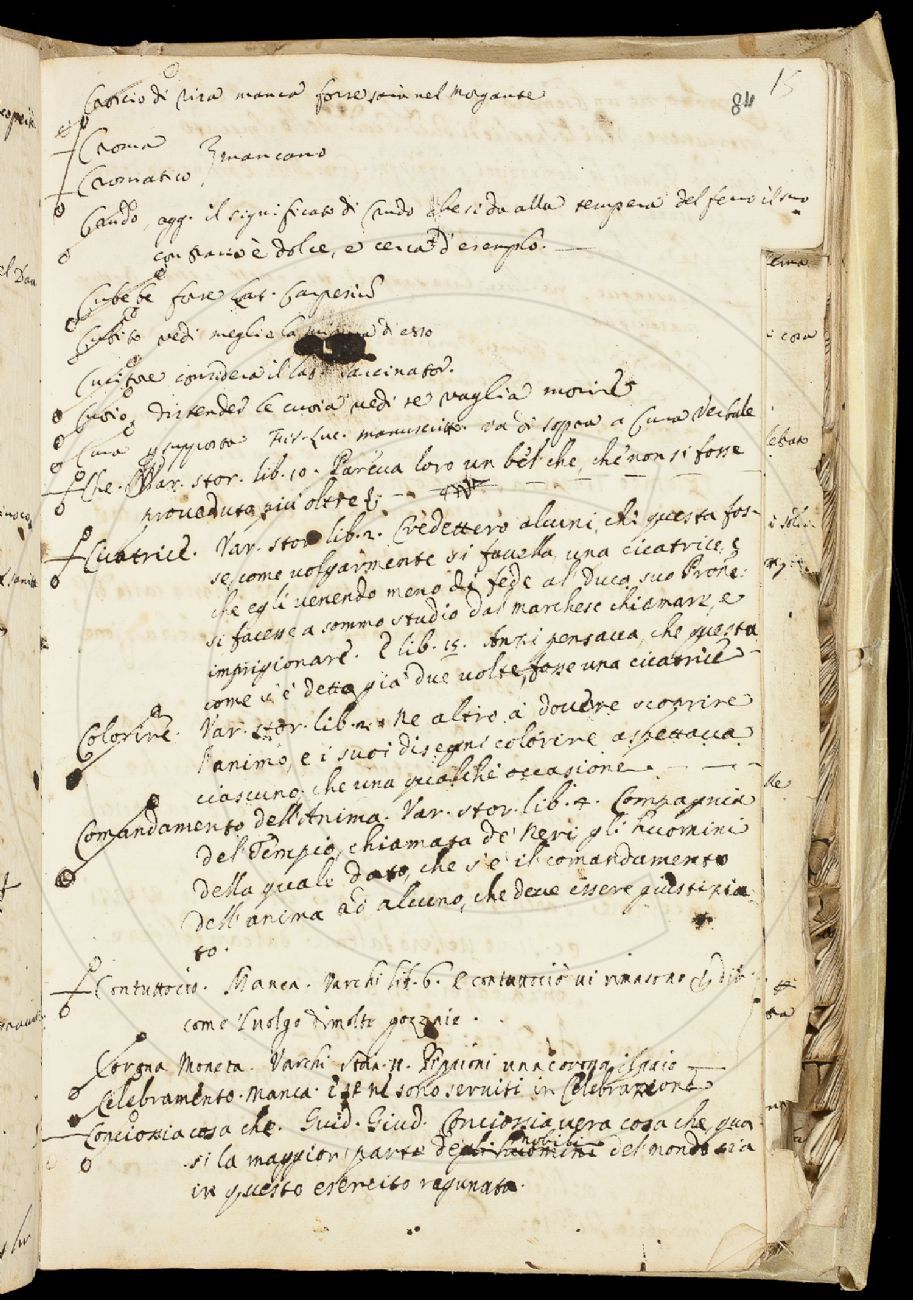 15
84
Croscio di risa manca forse sarà nel Morgante
Croma
Cromatico } mancano
Crudo, agg. il significato di Crudo che si da alla tempera del ferro il suo
contrario è dolce, e cerca d'esempio.
Cubebe forse Lat.
Cubito vedi meglio la misura di esso
Cucitore considera il lat. sarcinator.
Cuoio, distender le cuoia vedi se vaglia morire
Cura supposta manuscritto. va di sopra a Cura Verbale
Che. Var. stor. lib. 10. Pareva loro un bel che, che non si fosse
proveduto più oltre
Cicatrice. Var. stor. lib. 2. Credettero alcuni, che questa fos-
se, come volgarmente si favella, una cicatrice,
che egli venendo meno di fede al Duca suo Prone:
si facesse a sommo studio dal marchese chiamare, e
imprigionare. E lib. 15. Anzi pensava, che questa
come s'è detto già due volte, fosse una cicatrice
Colorire. Var. stor. lib. 2. Ne altro a dovere scoprire
l'animo, e i suoi disegni colorire aspettava
ciascuno, che una qualche occasione
Comandamento dell'Anima. Var. stor. lib. 4. Compagnia
del Tempio, chiamata de' Neri gli huomini
della quale dato, che s'è il comandamento
dell'anima ad alcuno, che deve essere giustizia
to.
Contuttociò. Manca. Varchi lib. 6. E contuttociò vi rimasono
come luolgo di molte
Corona Moneta. Varchi stor. 11. Pippioni una corona il paio
Celebramento. manca. E se ne sono serviti in Celebrazione
Conciossiacosa che. Guid. Giud. Conciossia vera cosa che, qua-
si la maggior parte degli huomini nobili del mondo sia
in questo esercito ragunata.